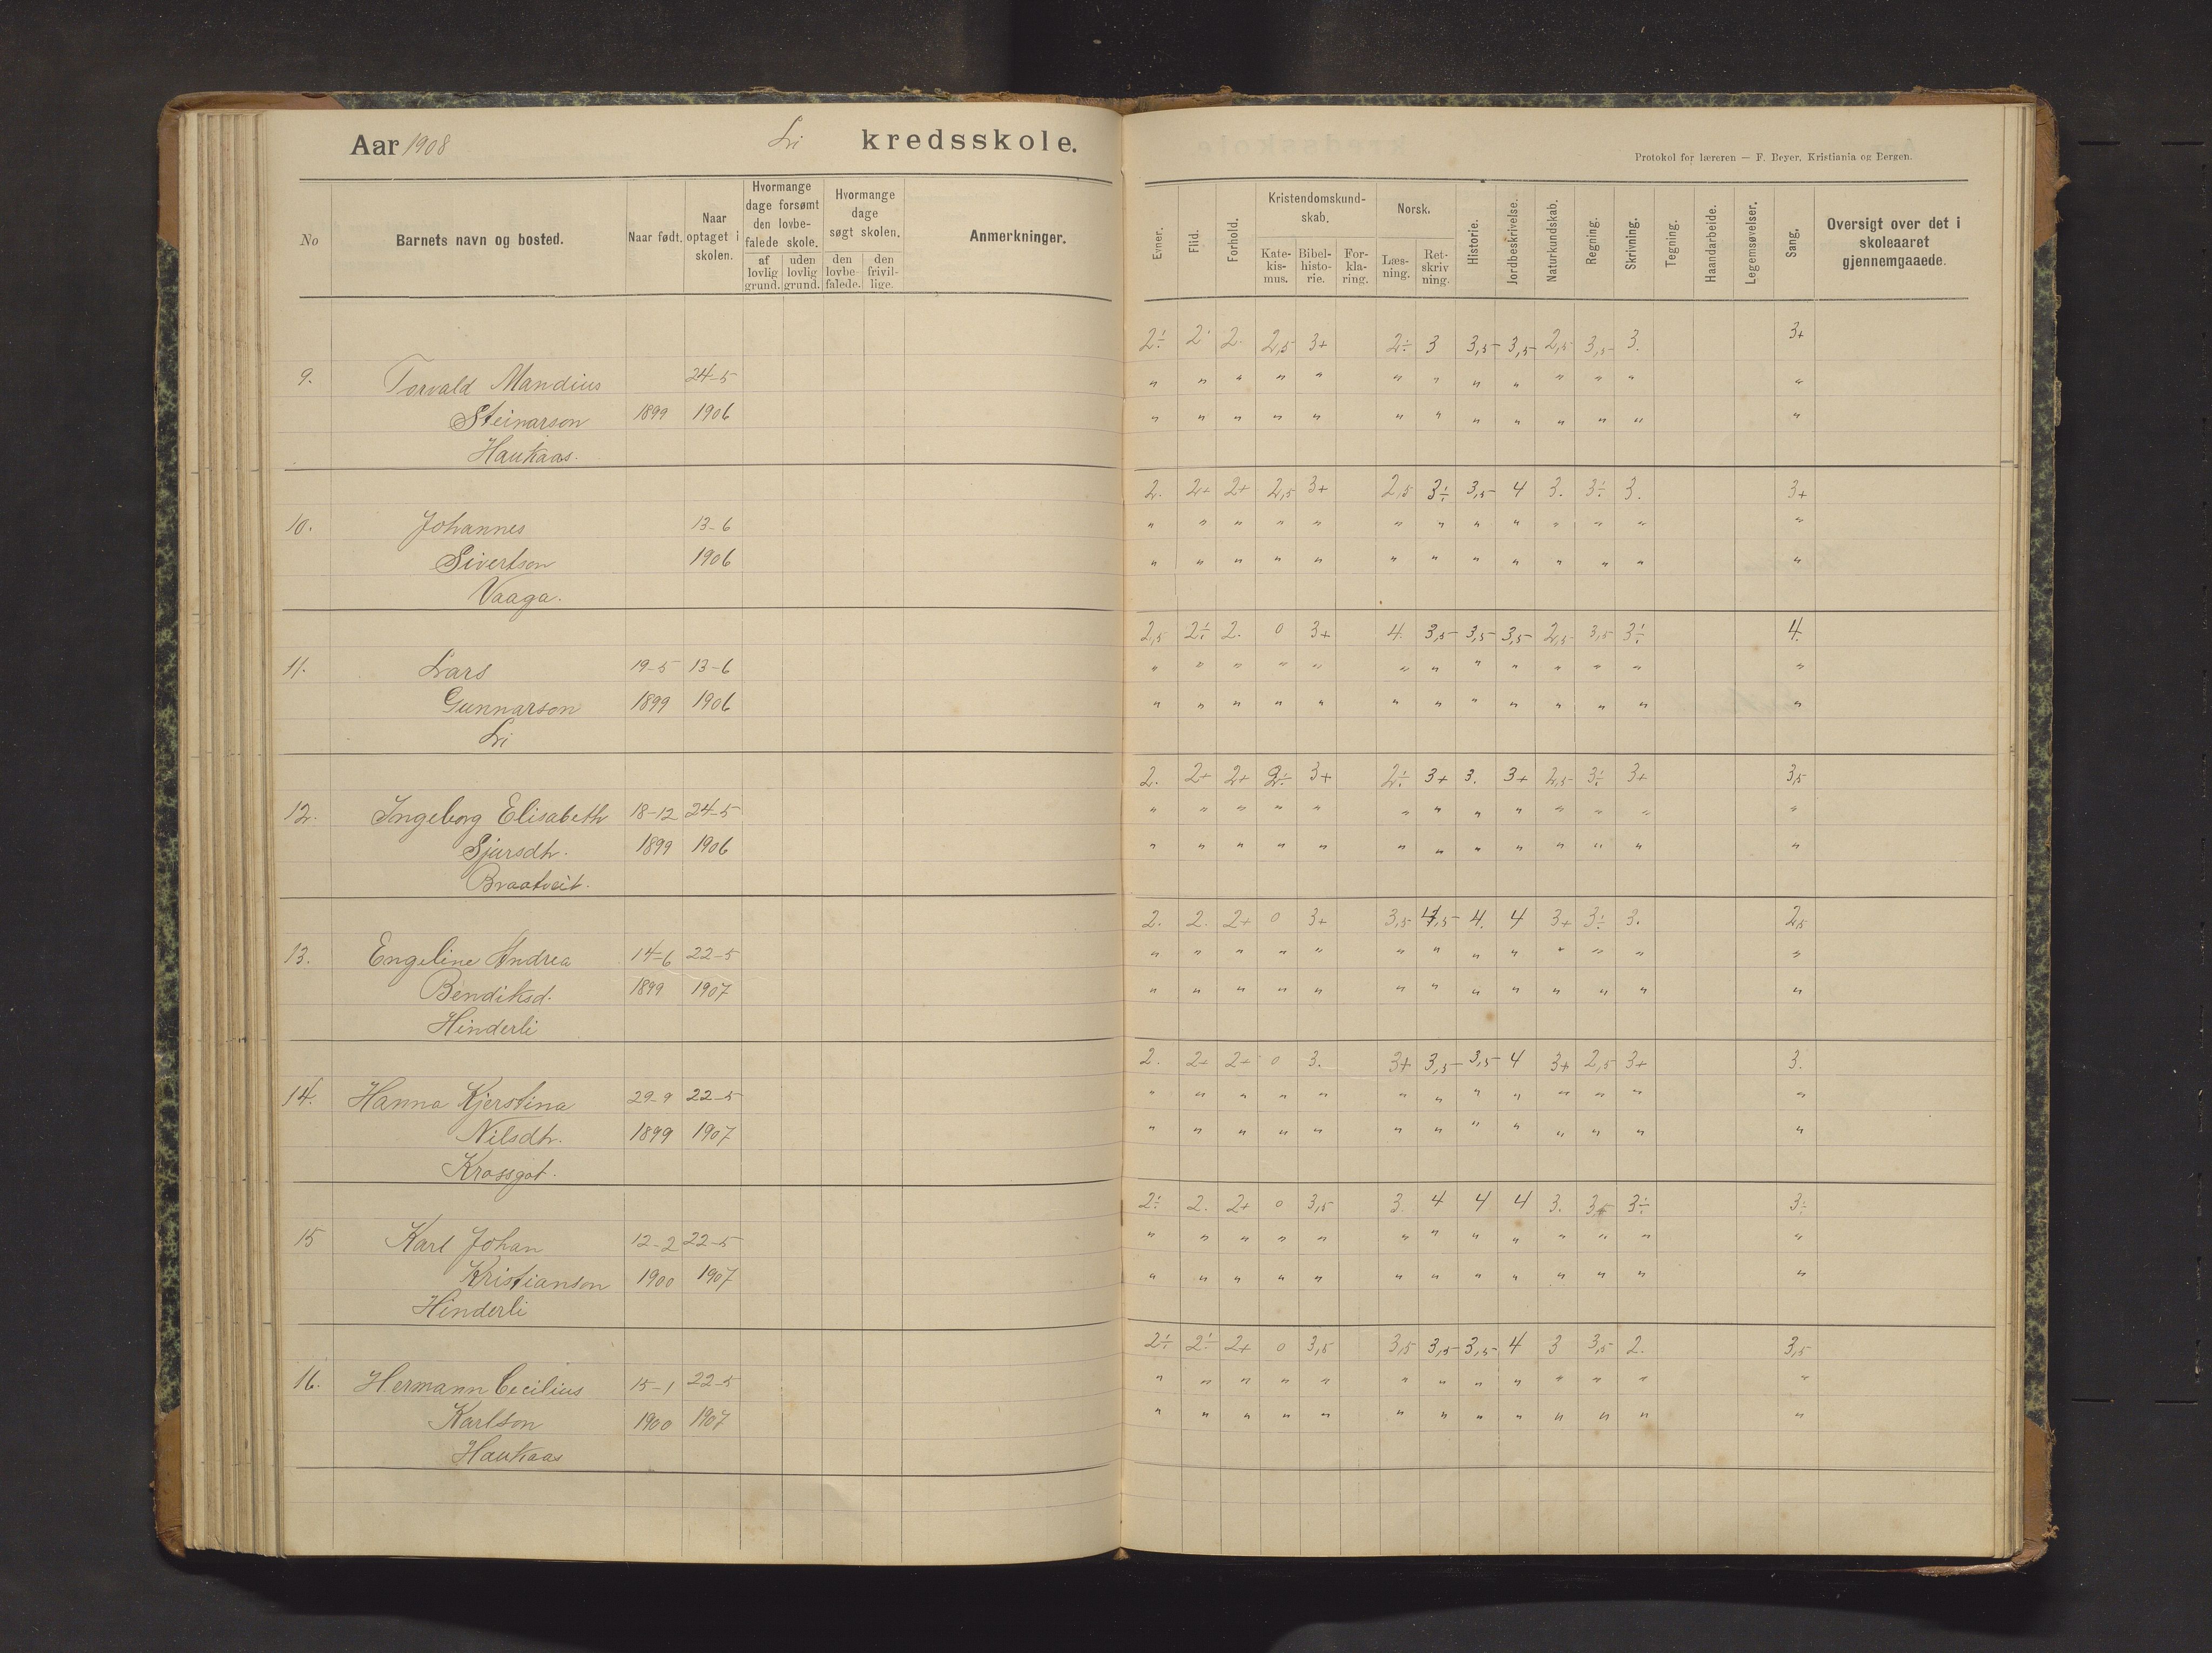 Aar 1908 Li kredsskole.
Protokol for læreren — F. Beyer, Kristiania og Bergen.
No Barnets navn og bosted. Naar født. Naar optaget i skolen. Hvormange dage forsømt den lovbefalede skole. af lovlig grund. uden lovlig grund. Hvormange dage søgt skolen. den lovbefalede. den frivillige. Anmerkninger.
Evner. Flid. Forhold. Kristendomskundskab. Katekismus. Bibelhistorie. Forklaring. Norsk. Læsning. Retskrivning. Historie. Jordbeskrivelse. Naturkundskab. Regning. Skrivning. Tegning. Haandarbeide. Legemsøvelser. Sang. Oversigt over det i skoleaaret gjennemgaaede.
2÷ 2· 2. 2,5 3+ 2÷ 3 3,5 3,5 2,5 3,5 3. 3+
9. Torvald Mandius 24-5 " " " " " " " " " " " " "
Steinarson 1899 1906 " " " " " " " " " " " " "
Haukaas.
2. 2+ 2+ 2,5 3+ 2,5 3÷ 3,5 4 3. 3÷ 3. 3+
10. Johannes 13-6 " " " " " " " " " " " " "
Sivertson 1906 " " " " " " " " " " " " "
Vaaga.
2,5 2÷ 2. 0 3+ 4. 3,5 3,5 3,5 2,5 3,5 3÷ 4.
11. Lars 19-5 13-6 " " " " " " " " " " " " "
Gunnarson 1899 1906 " " " " " " " " " " " " "
Li
2. 2+ 2+ 2÷ 3+ 2÷ 3+ 3. 3+ 2,5 3÷ 3+ 3,5
12. Ingeborg Elisabeth 18-12 24-5 " " " " " " " " " " " " "
Sjursdh. 1899 1906 " " " " " " " " " " " " "
Braatveit.
2. 2. 2+ 0 3+ 3,5 4,5 4. 4 3+ 3÷ 3. 2,5
13. Engeline Andrea 14-6 22-5 " " " " " " " " " " " " "
Bendiksd. 1899 1907 " " " " " " " " " " " " "
Hinderli
2. 2+ 2+ 0 3. 3+ 3,5 3,5 4 3+ 2,5 3+ 3.
14. Hanna Kjerstina 29-9 22-5 " " " " " " " " " " " " "
Nilsdh. 1899 1907 " " " " " " " " " " " " "
Krossgot.
2÷ 2. 2+ 0 3,5 3. 4 4 4 3. 3÷ 3÷
15 Karl Johan 12-2 22-5 " " " " " " " " " " " " "
Kristianson 1900 1907 " " " " " " " " " " " " "
Hinderli
2÷ 2÷ 2+ 0 3,5 3,5 3,5 3,5 4 3 3,5 2. 3,5
16. Hermann Cecilius 15-1 22-5 " " " " " " " " " " " " "
Karlson 1900 1907 " " " " " " " " " " " " "
Haukaas